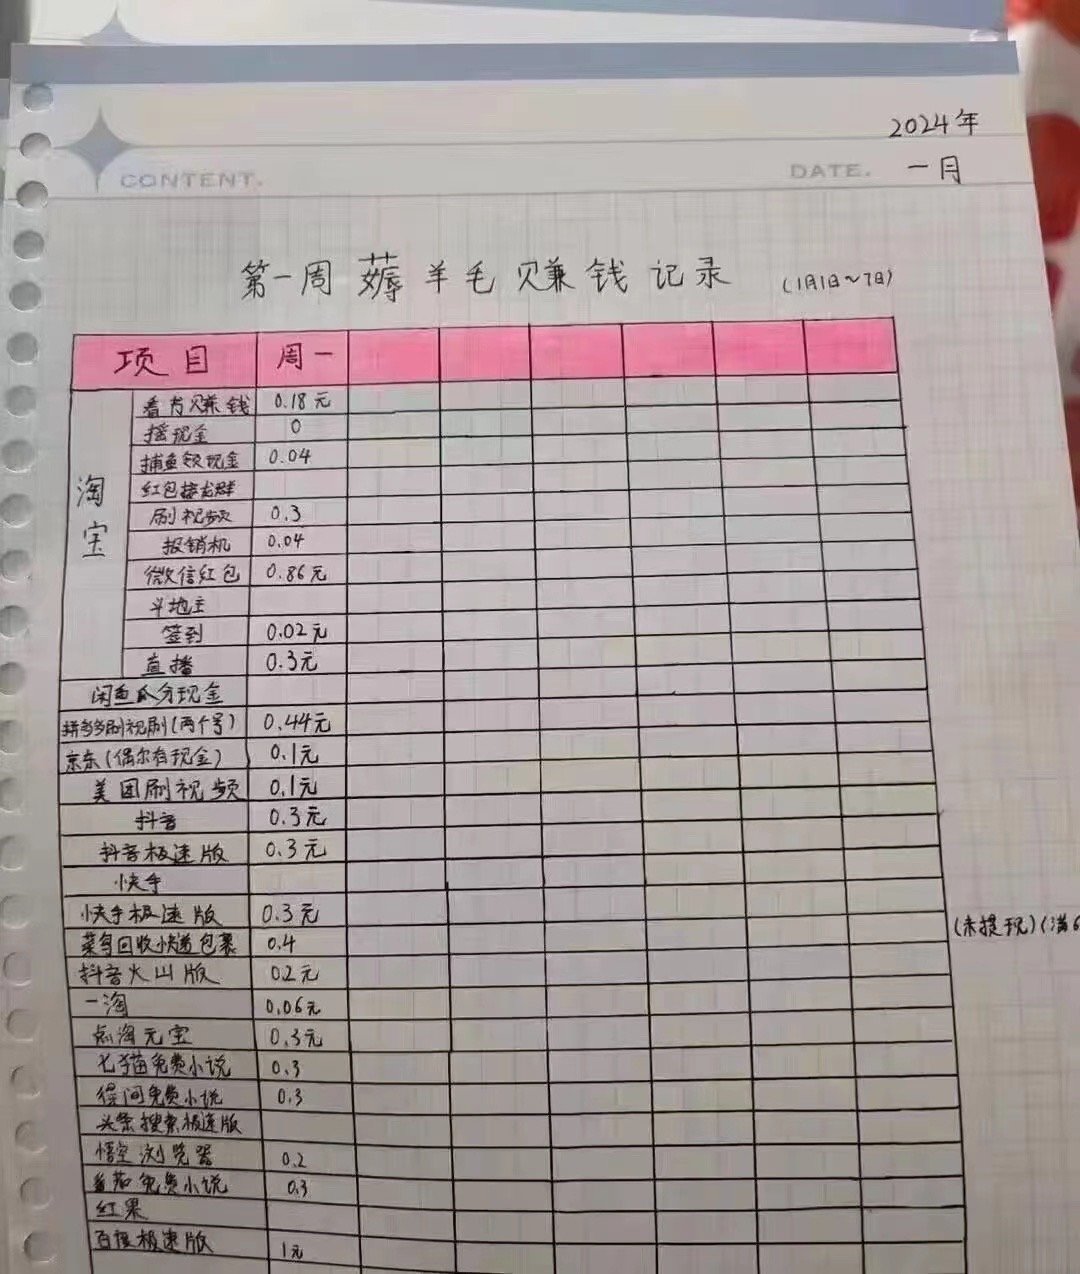 2024年
CONTENT.
DATE. 一月
第一周薅羊毛赚钱记录 (1月1日~7日)
项目 周一
淘宝
看为赚钱 0.18元
摇现金 0
捕鱼领现金 0.04
红包接龙群
刷视频 0.3
报销机 0.04
微信红包 0.86元
斗地主
签到 0.02元
直播 0.3元
闲鱼瓜分现金
拼多多刷视刷(两个号) 0.44元
京东(偶尔有现金) 0.1元
美团刷视频 0.1元
抖音 0.3元
抖音极速版 0.3元
快手
快手极速版 0.3元 (未提现)(满6
菜鸟回收快递包裹 0.4
抖音火山版 02元
一淘 0.06元
点淘元宝 0.3元
七猫免费小说 0.3
得间免费小说 0.3
头条搜索极速版
悟空浏览器 0.2
番茄免费小说 0.3
红果
百度极速版 1元